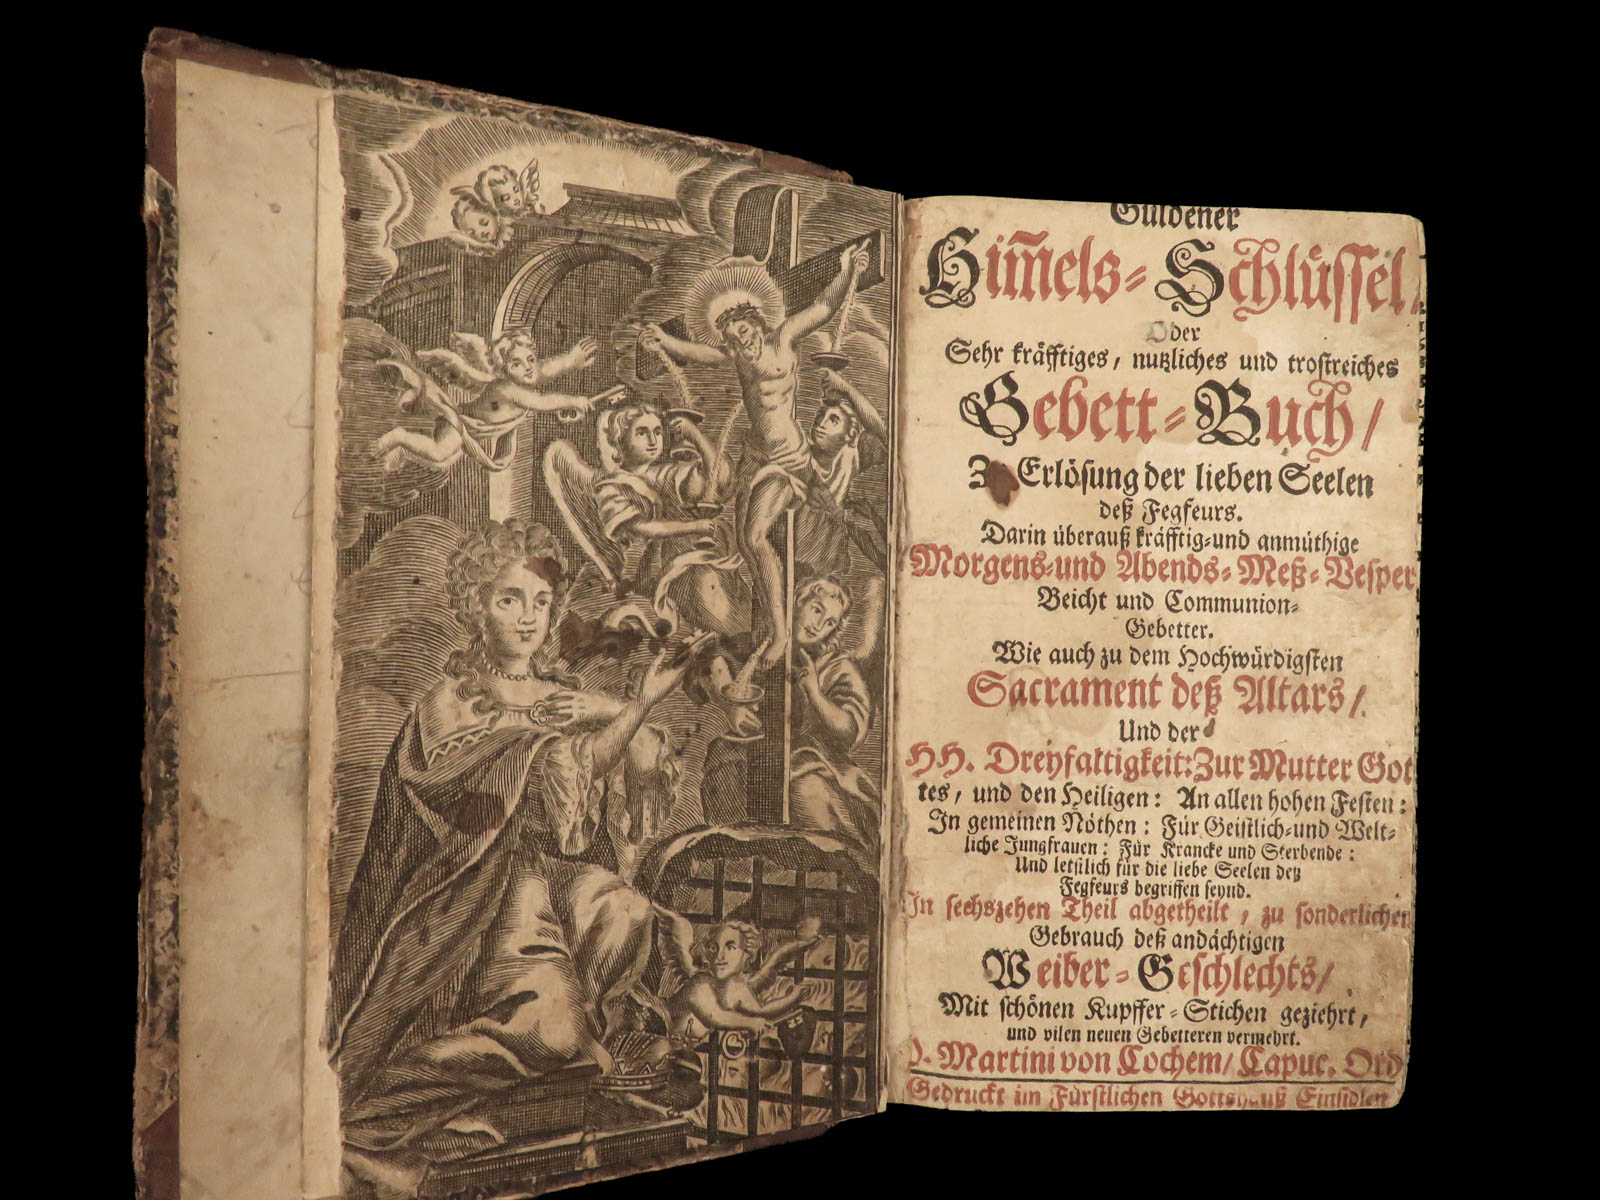 Guldener
Him̃els-Schlüssel,
Oder
Sehr kräfftiges, nutzliches und trostreiches
Gebett-Buch/
Erlösung der lieben Seelen
deß Fegfeurs.
Darin überauß kräfftig-und anmuthige
Morgens-und Abends-Meß-Vesper
Beicht und Communion-
Gebetter.
Wie auch zu dem Hochwürdigsten
Sacrament deß Altars/
Und der
HH. Dreyfaltigkeit: Zur Mutter Got
tes, und den Heiligen: An allen hohen Festen:
In gemeinen Nöthen: Für Geistlich-und Welt-
liche Jungfrauen: Für Krancke und Sterbende:
Und letstlich für die liebe Seelen deß
Fegfeurs begriffen seynd.
In sechszehen Theil abgetheilt, zu sonderlichen
Gebrauch deß andächtigen
Weiber-Geschlechts/
Mit schönen Kupffer-Stichen geziehrt,
und vilen neuen Gebetteren vermehrt.
P. Martini von Cochem/ Capuc. Ord
Gedruckt im Fürstlichen Gottshauß Einsidlen